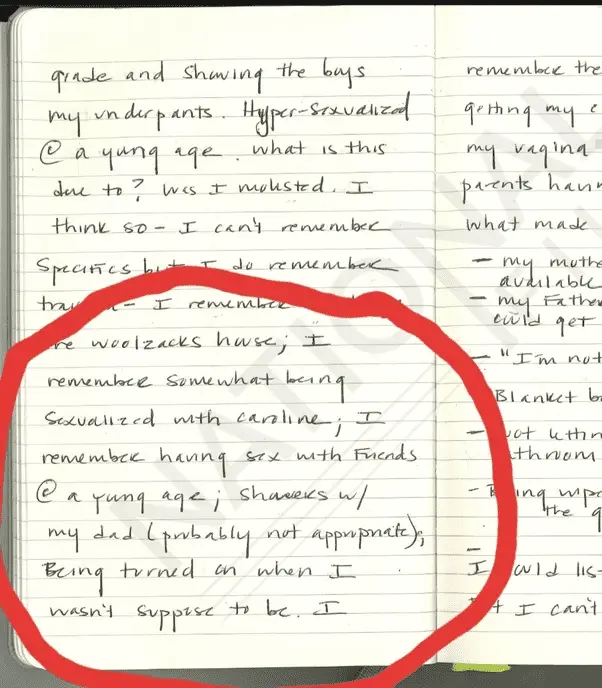 grade and showing the boys
my underpants. Hyper-sexualized
@ a yung age. what is this
due to? Was I molested. I
think so - I can't remember
specifics but I do remember
I remember
woolzacks house; I
remember somewhat being
sexualized with caroline; I
remember having sex with Friends
@ a yung age; showers w/
my dad (probably not appropriate);
Being turned on when I
wasn't suppose to be. I
remember the
getting my
my vagina
parents
what made
- my
available
- my Father
could get
- "I'm not
Blanket
-
-
the
-
I
I can't
NATIONAL